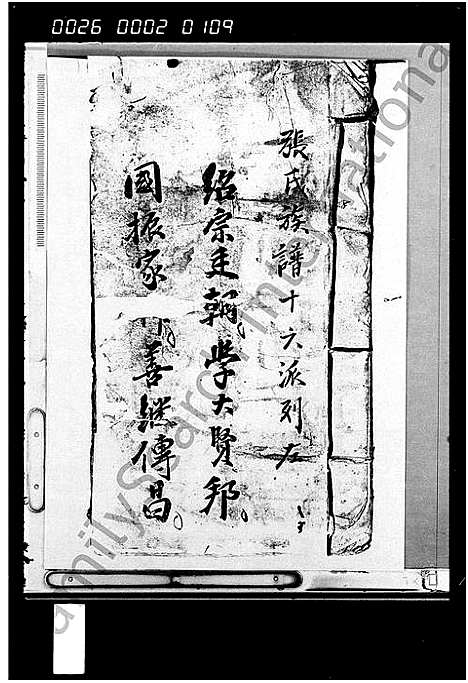 0026 0002 0109
張氏族譜十六派列左
紹宗廷朝學大賢邦。
國振家善繼傳昌。
FamilySearch International